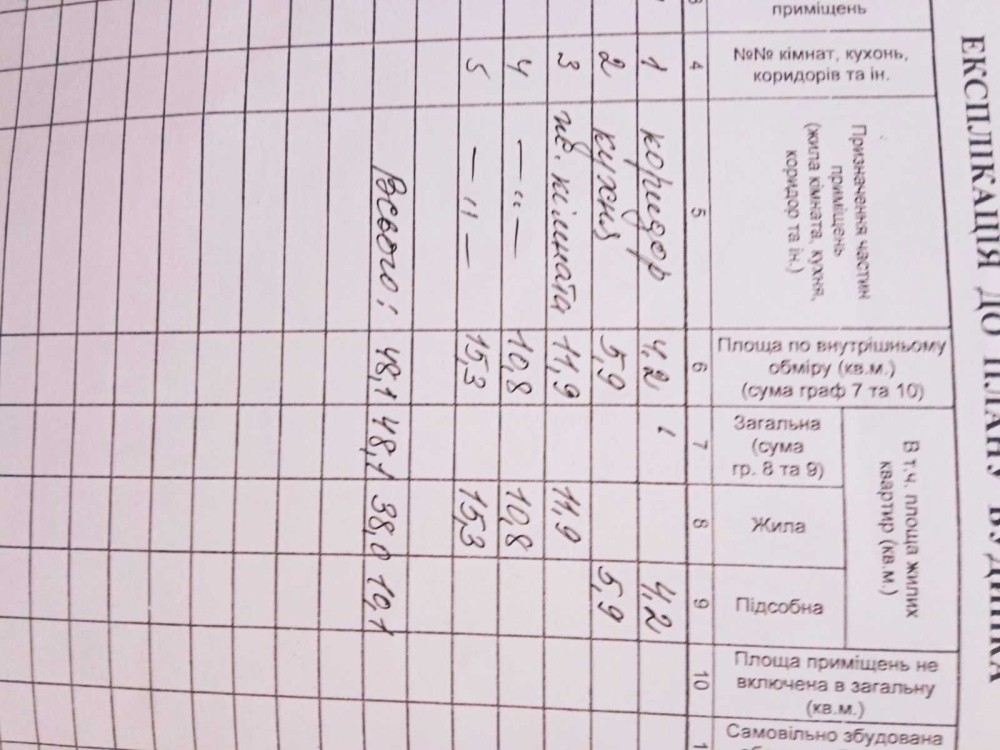 ЕКСПЛІКАЦІЯ ДО ПЛАНУ БУДИНКА
приміщень
№№ кімнат, кухонь,
коридорів та ін.
Призначення частин
приміщень
(жила кімната, кухня,
коридор та ін.)
Площа по внутрішньому
обміру (кв.м.)
(сума граф 7 та 10)
В т.ч. площа жилих
квартир (кв.м.)
Загальна
(сума
гр. 8 та 9)
Жила
Підсобна
Площа приміщень не
включена в загальну
(кв.м.)
Самовільно збудована
3 4 5 6 7 8 9 10 1
1 коридор 4,2 4,2
2 кухня 5,9 5,9
3 жв. кімната 11,9 11,9
4 — " — 10,8 10,8
5 — " — 15,3 15,3
Всього: 48,1 48,1 38,0 10,1